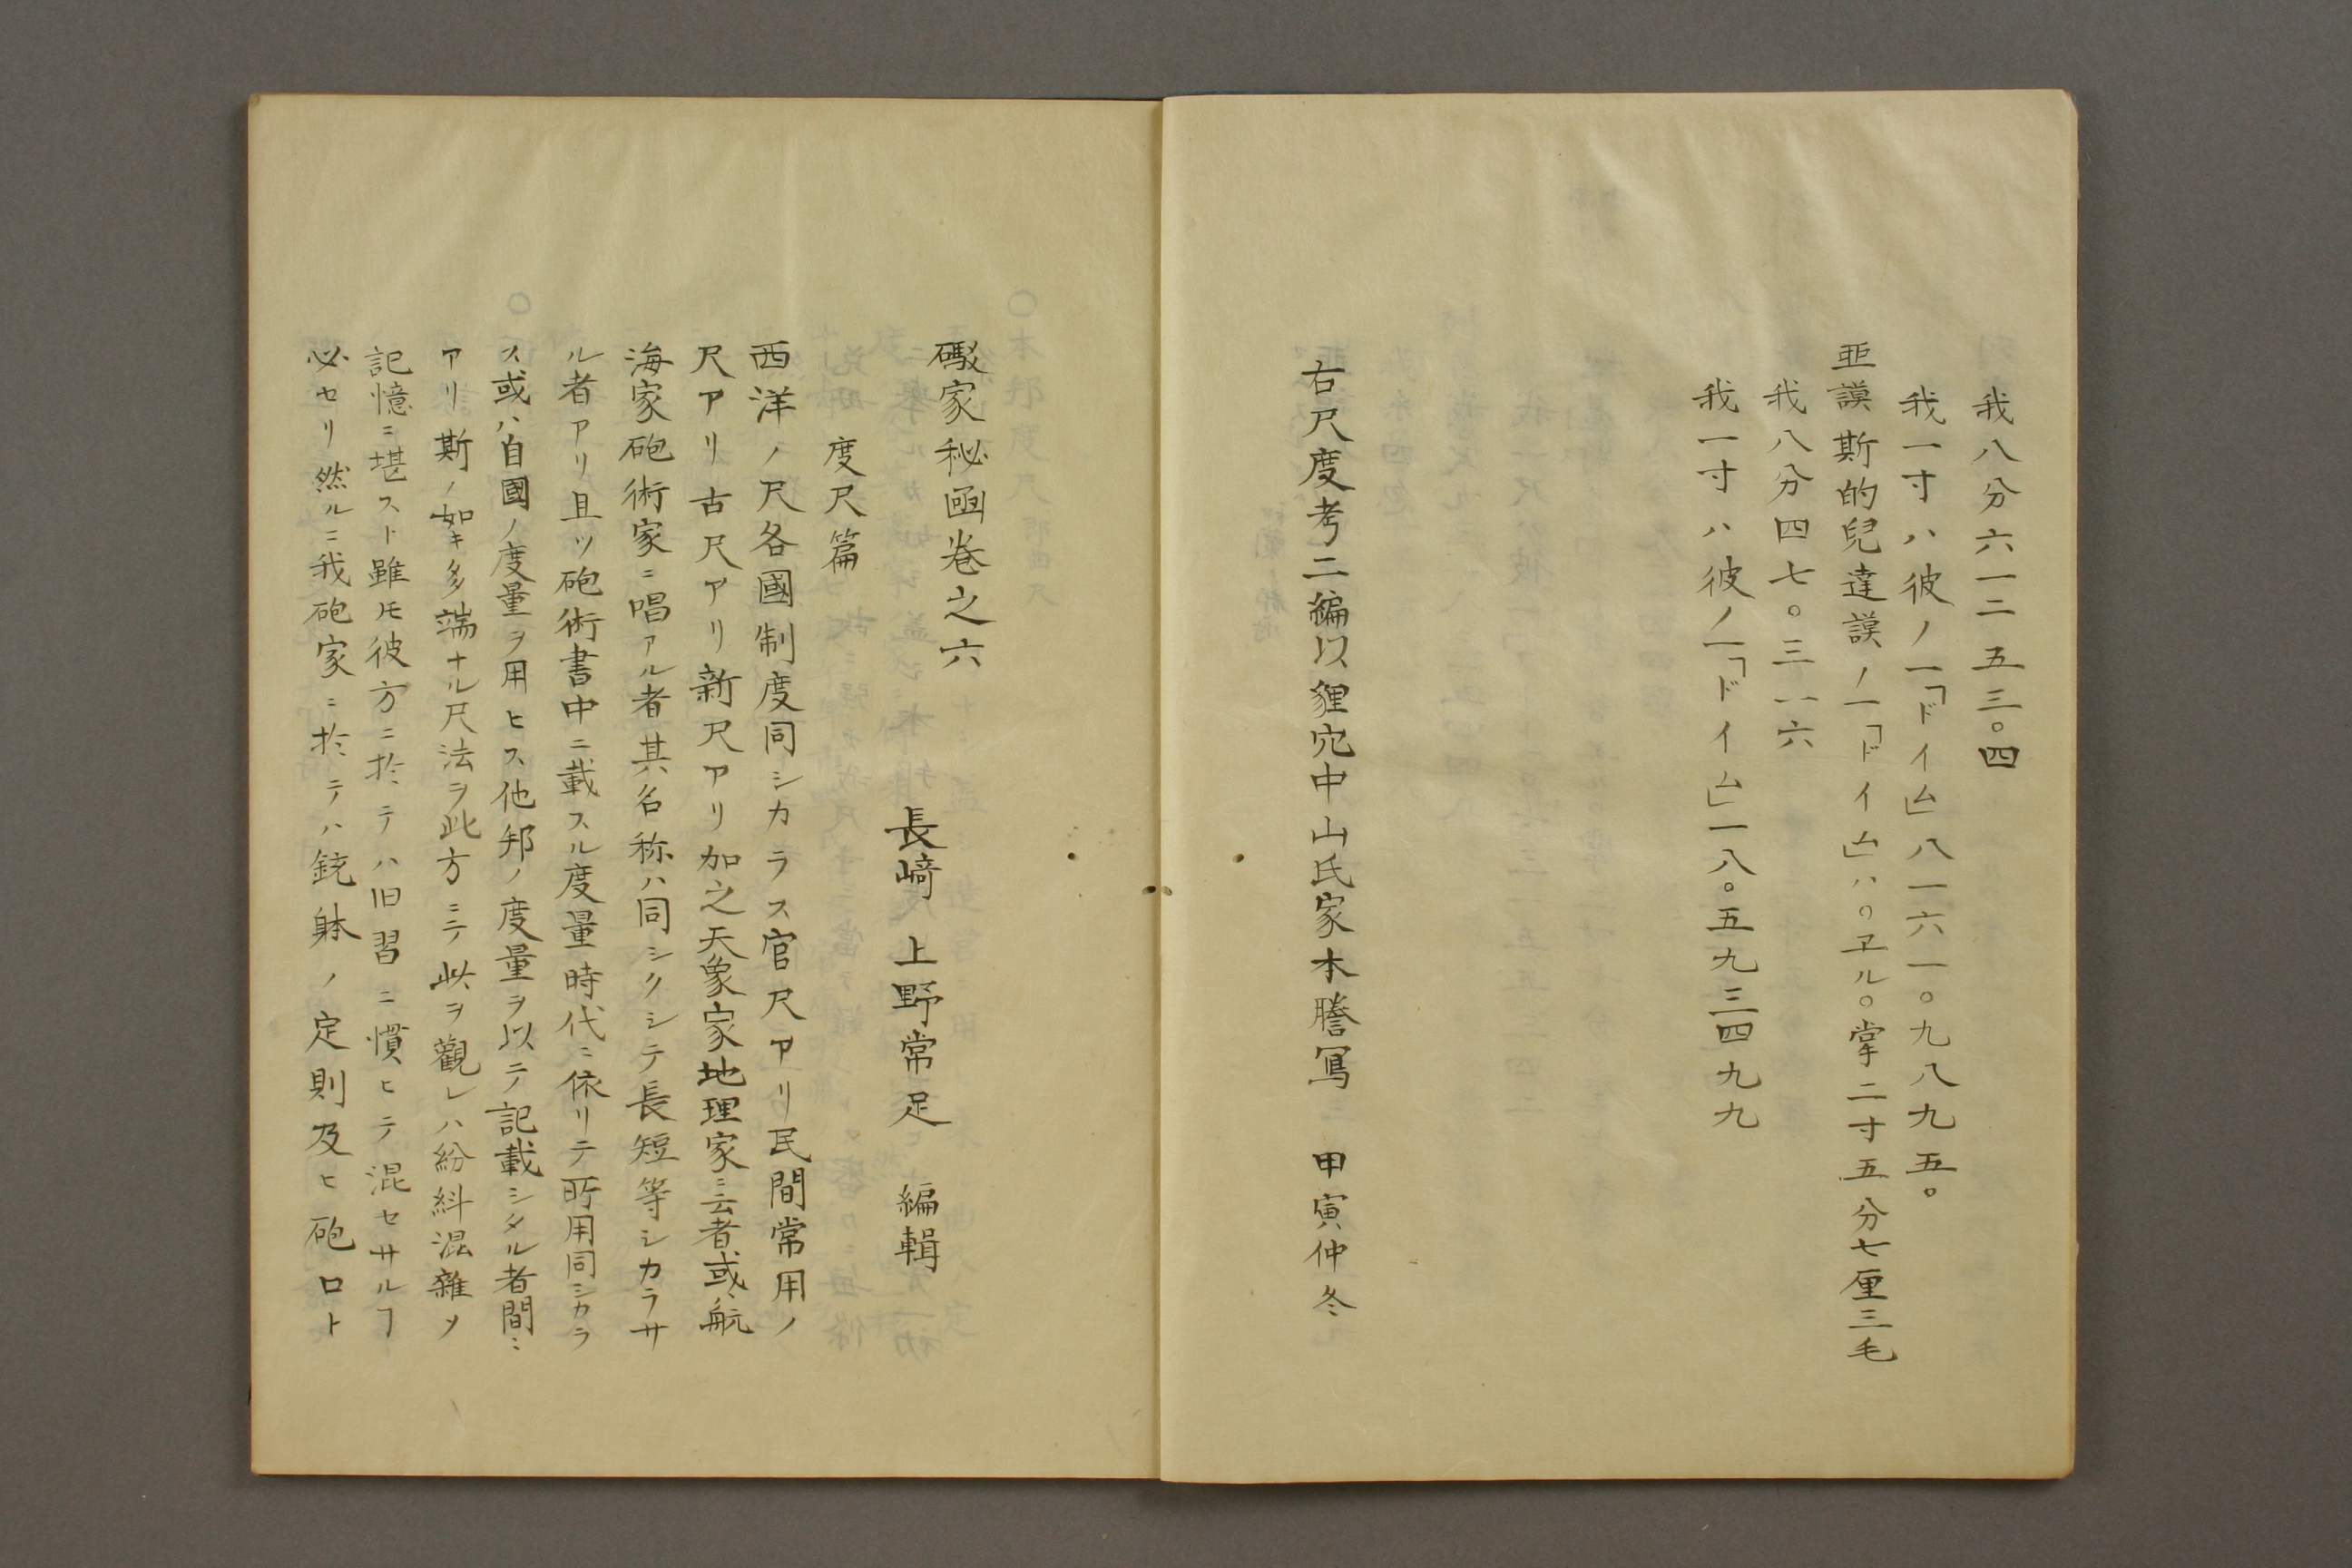 我八分六一二五三。四
我一寸ハ彼ノ一「ドイム」八一六一。九八九五。
亜謨斯的兒達謨ノ一「ドイム」ハ。ヱル。掌二寸五分七厘三毛
我八分四七。三一六
我一寸ハ彼ノ一「ドイム」一八。五九三四九九
右尺度考二編以狸穴中山氏家本謄冩　甲寅仲冬
礮家秘凾卷之六
長﨑　上野常足　編輯
度尺篇
西洋ノ尺各國制度同シカラス官尺アリ民間常用ノ
尺アリ古尺アリ新尺アリ加之天象家地理家ニ云者或ハ航
海家砲術家ニ唱アル者其名称ハ同シクシテ長短等シカラサ
ル者アリ且ツ砲術書中ニ載スル度量時代ニ依リテ所用同シカラ
ス或ハ自國ノ度量ヲ用ヒス他邦ノ度量ヲ以テ記載シタル者間ニ
アリ斯ノ如キ多端ナル尺法ヲ此方ニテ此ヲ觀レハ紛糾混雜〆
記憶ニ堪スト雖モ彼方ニ於テハ旧習ニ慣ヒテ混セサルヿ
必セリ然ルニ我砲家ニ於テハ銃躰ノ定則及ヒ砲口ト